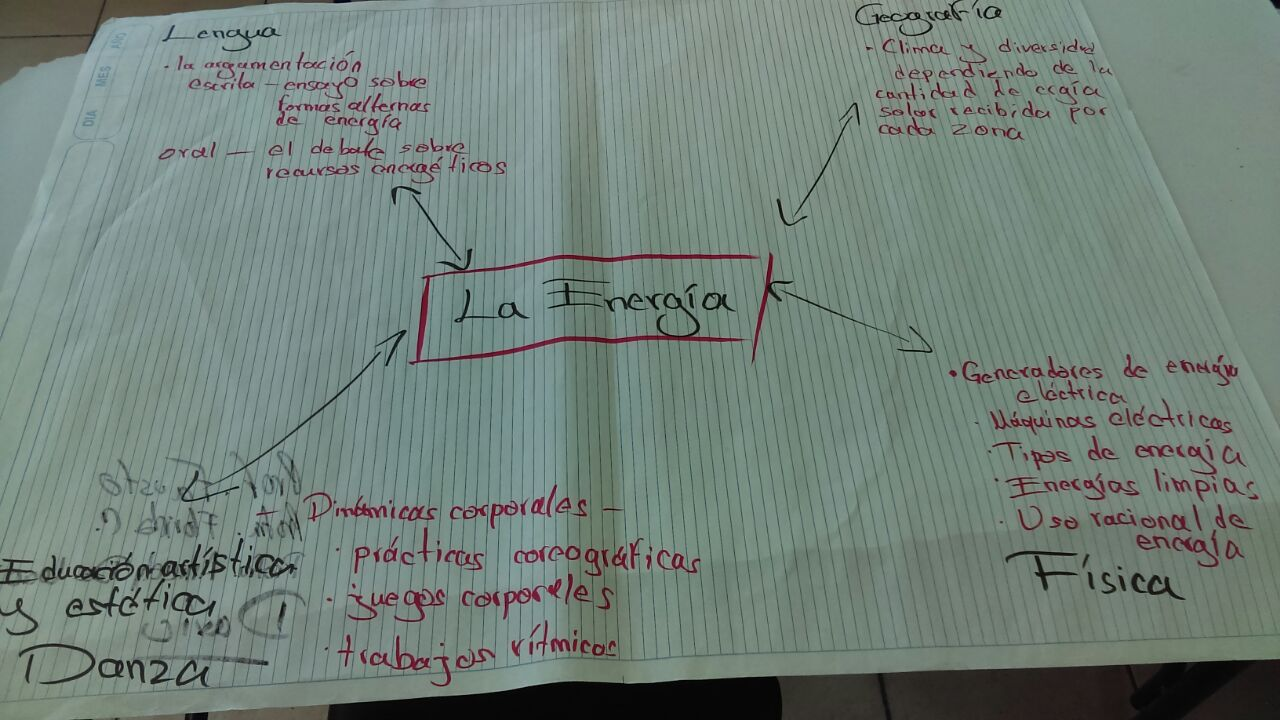 Lengua
· la argumentación
escrita – ensayo sobre
formas alternas
de energía
oral – el debate sobre
recursos energéticos
Geografía
· Clima y diversidad
dependiendo de la
cantidad de ergía
solar recibida por
cada zona
La Energía
· Generadores de energía
eléctrica
· Máquinas eléctricas
· Tipos de energía
· Energías limpias
· Uso racional de
energía
Física
Dinámicas corporales –
· prácticas coreográficas
· juegos corporales
· trabajos rítmicos
Educación artística
y estética
Danza
DIA MES AÑO